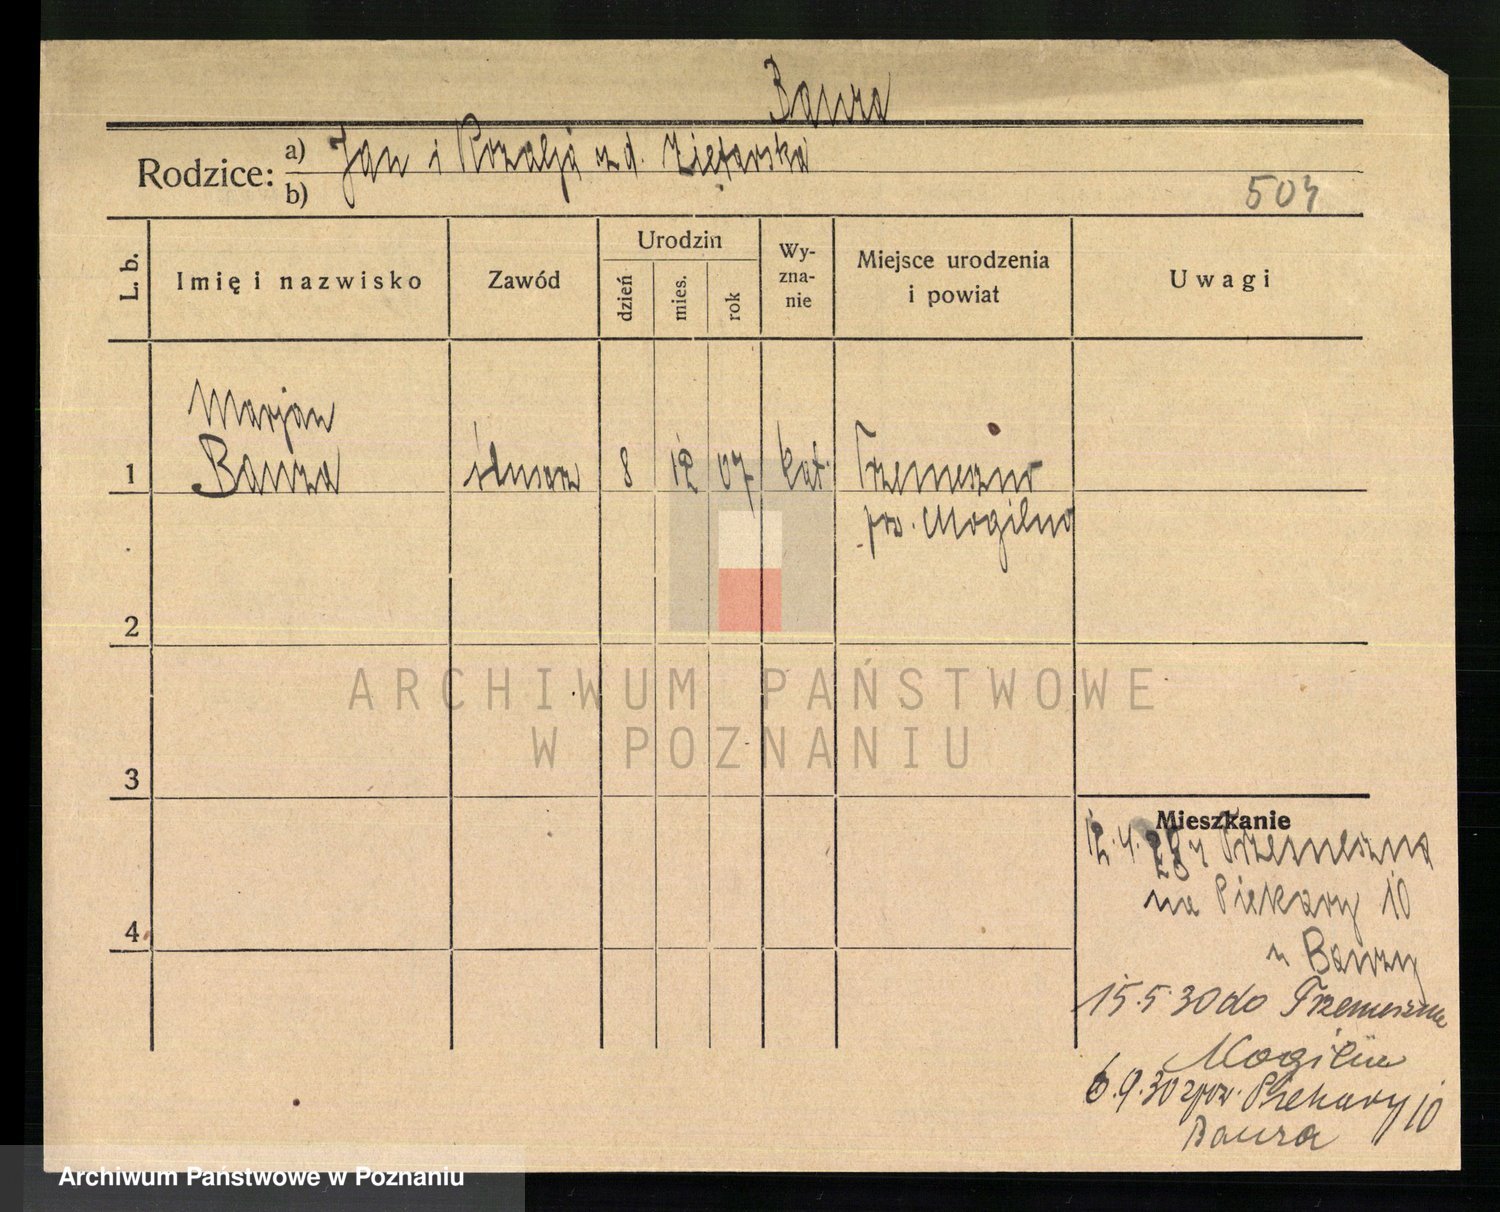 Bawza
Rodzice: a) Jan i Rozalja z d. Ziętarska
b)
504
L. b.
Imię i nazwisko
Zawód
Urodzin
dzień
mies.
rok
Wy-
zna-
nie
Miejsce urodzenia
i powiat
Uwagi
Marjan
1 Bawza ślusarz 8 12 07 kat. Trzemeszno
pow. Mogilno
2
3
4
Mieszkanie
12.4.28 z Trzemeszna
na Piekary 10
u Bawzy
15.5.30 do Trzemeszna
Mogilno
6.9.30 zpow. Piekary 10
Bawza
ARCHIWUM PAŃSTWOWE
W POZNANIU
Archiwum Państwowe w Poznaniu